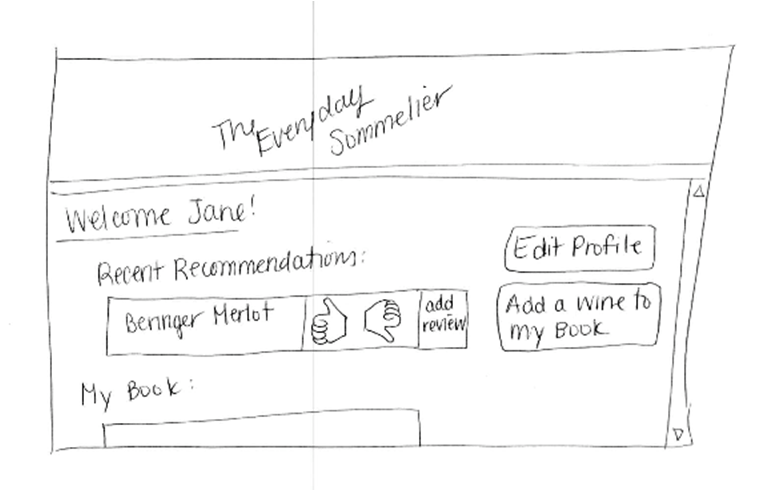 The Everyday
Sommelier
Welcome Jane!
Recent Recommendations:
Beringer Merlot
add
review
Edit Profile
Add a wine to
my Book
My Book: